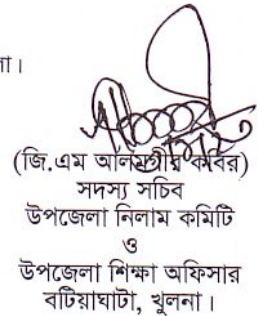 া।
(জি.এম আলমগীর কবির)
সদস্য সচিব
উপজেলা নিলাম কমিটি
ও
উপজেলা শিক্ষা অফিসার
বটিয়াঘাটা, খুলনা।